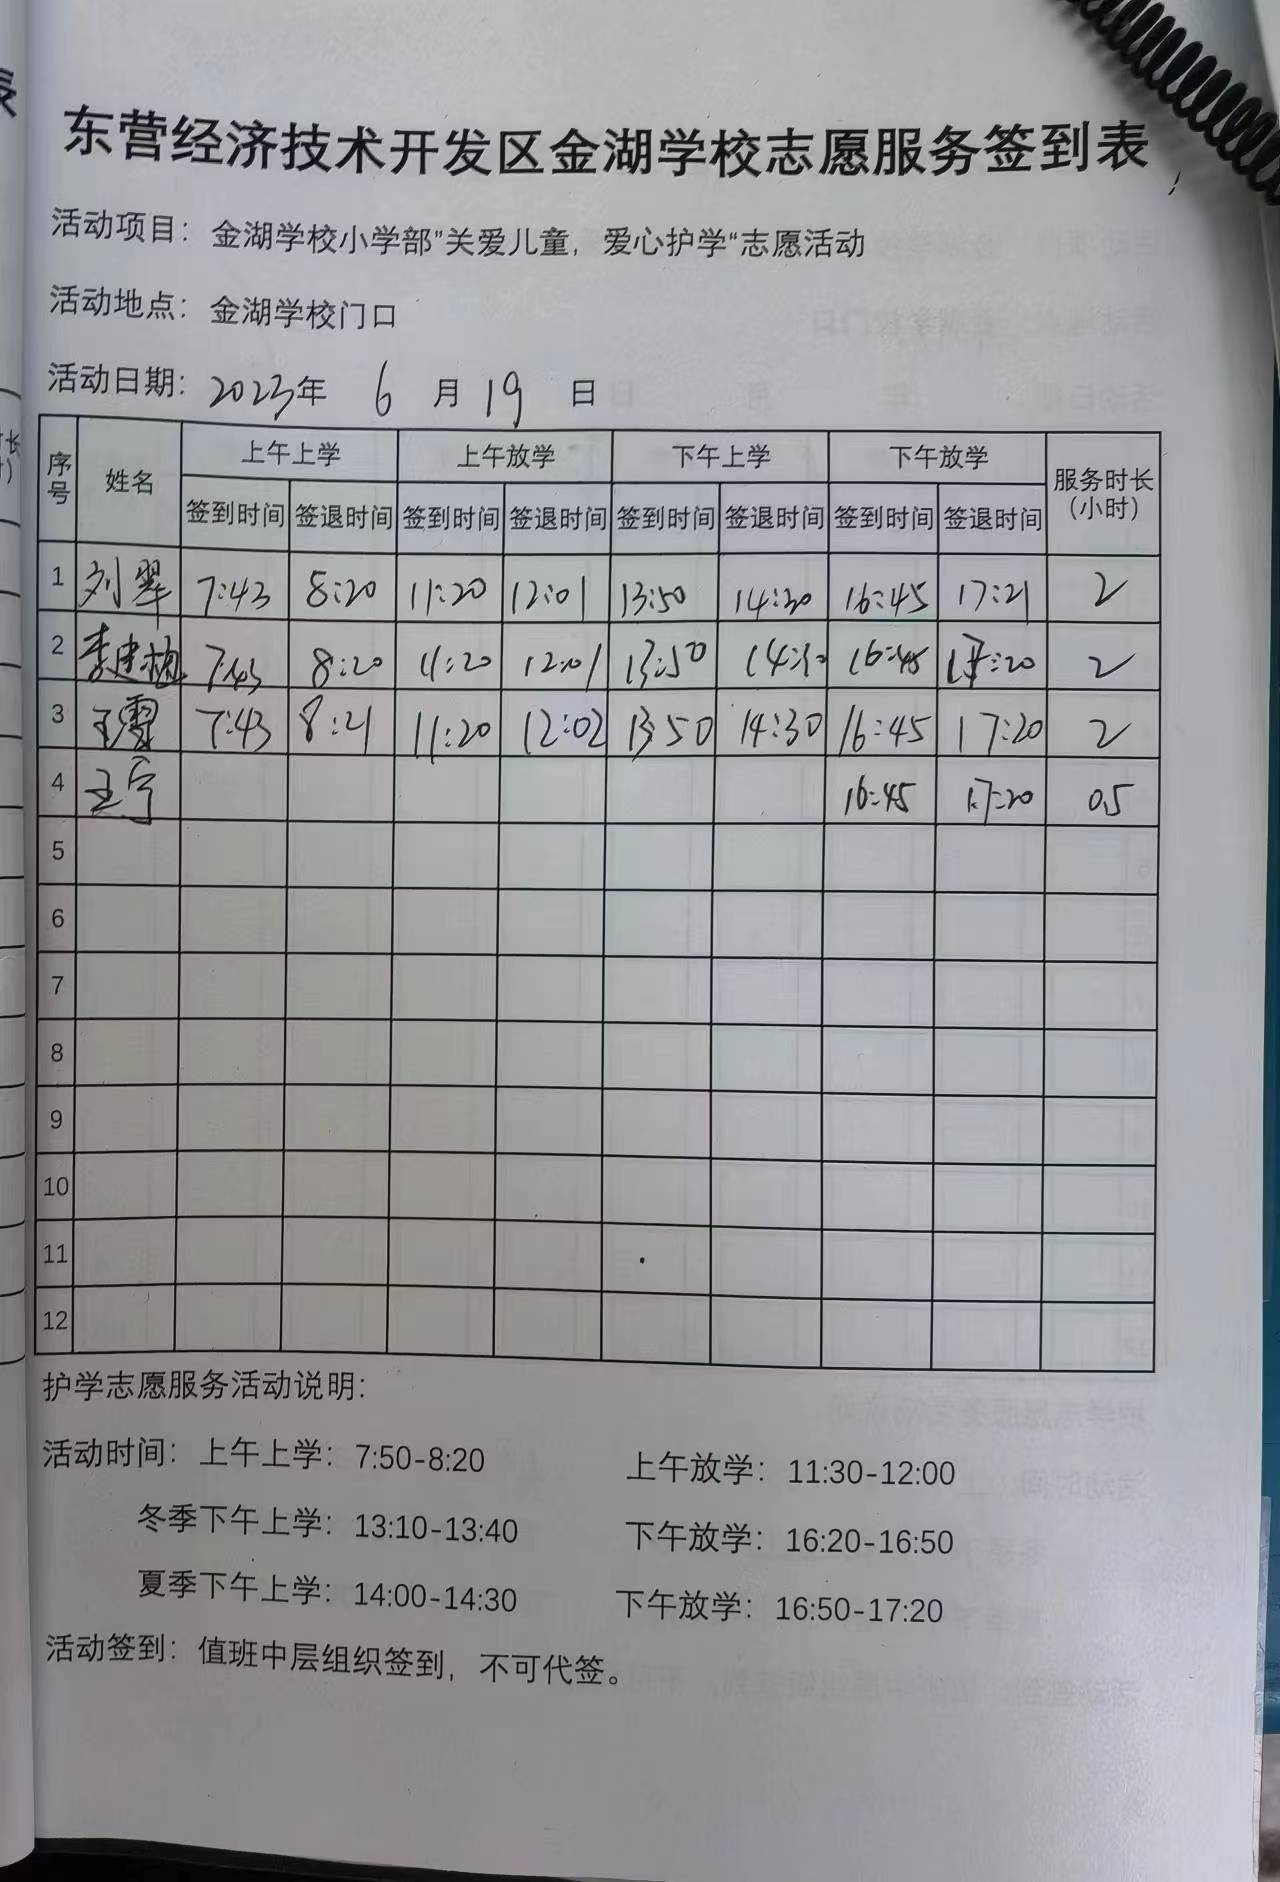 东营经济技术开发区金湖学校志愿服务签到表
活动项目：金湖学校小学部”关爱儿童，爱心护学“志愿活动
活动地点：金湖学校门口
活动日期：2023年 6 月 19 日
序号 姓名 上午上学 上午放学 下午上学 下午放学 服务时长（小时）
签到时间 签退时间 签到时间 签退时间 签到时间 签退时间 签到时间 签退时间
1 刘翠 7:43 8:20 11:20 12:01 13:50 14:30 16:45 17:21 2
2 李建梅 7:43 8:20 11:20 12:01 13:50 14:30 16:45 17:20 2
3 王雪 7:43 8:21 11:20 12:02 13:50 14:30 16:45 17:20 2
4 王宁 16:45 17:20 0.5
5
6
7
8
9
10
11
12
护学志愿服务活动说明：
活动时间：上午上学：7:50-8:20 上午放学：11:30-12:00
冬季下午上学：13:10-13:40 下午放学：16:20-16:50
夏季下午上学：14:00-14:30 下午放学：16:50-17:20
活动签到：值班中层组织签到，不可代签。